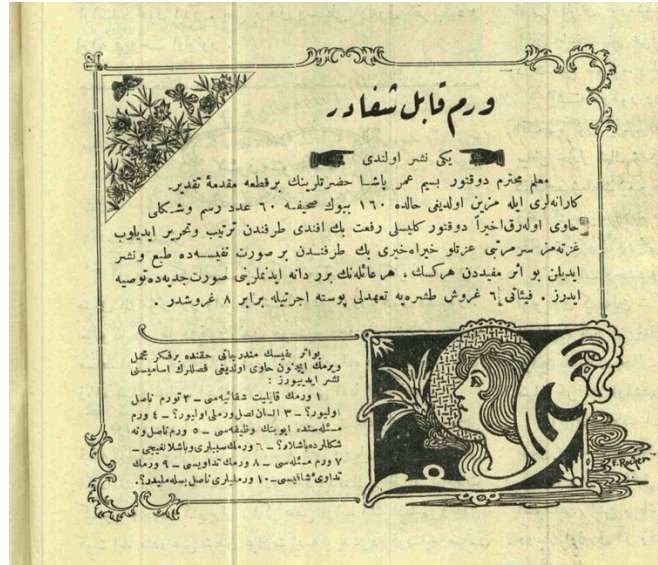 ورم قابل شفادر
یکی نشر اولندی
معلم محترم دوقتور بسیم عمر پاشا حضرتلرینك برقطعه مقدمهٔ تقدیر-
كارانه‌لری ایله مزین اولدیغی حالده ١٦٠ بیوك صحیفه ٦٠ عدد رسم وشكلی
حاوی اوله‌رق اخیراً دوقتور كلیسلی رفعت بك افندی طرفندن ترتیب وتحریر ایدیلوب
غزته‌مز سرمرتبی عزتلو خیراه خبری بك طرفنـدن بر صورت نفیسه‌ده طبع ونشر
ایدیلن بو اثر مفیددن هركسك ، هر عائله‌نك برر دانه ایدنملرینی صورت جدیه‌ده توصیه
ایدرز . فیئاتی ٦ غروش طشره‌یه تعهدلی پوسته اجرتیله برابر ٨ غروشدر .
بواثر نفیسك مندرجاتی حقنده برفكر مجمل
ویرمك ایچون حاوی اولدیغی فصللرك اسامیسنی
نشر ایدییورز :
١ ورمك قابلیت شفائیه‌سی – ٢ تورم ناصل
اولیور؟ – ٣ انسان نصل ورملی اولیور؟ – ٤ ورم
مسئله‌سنده ابوینك وظیفه‌سی – ٥ ورم ناصل ونه
شكلرده باشلار؟ – ٦ ورمك سببلری وباشلانغیجی –
٧ ورم مسئله‌سی – ٨ ورمك تداویسی – ٩ ورمك
تداوئ شافیسی – ١٠ ورملیلری ناصل بسله‌ملیدر؟.
F. Rochen